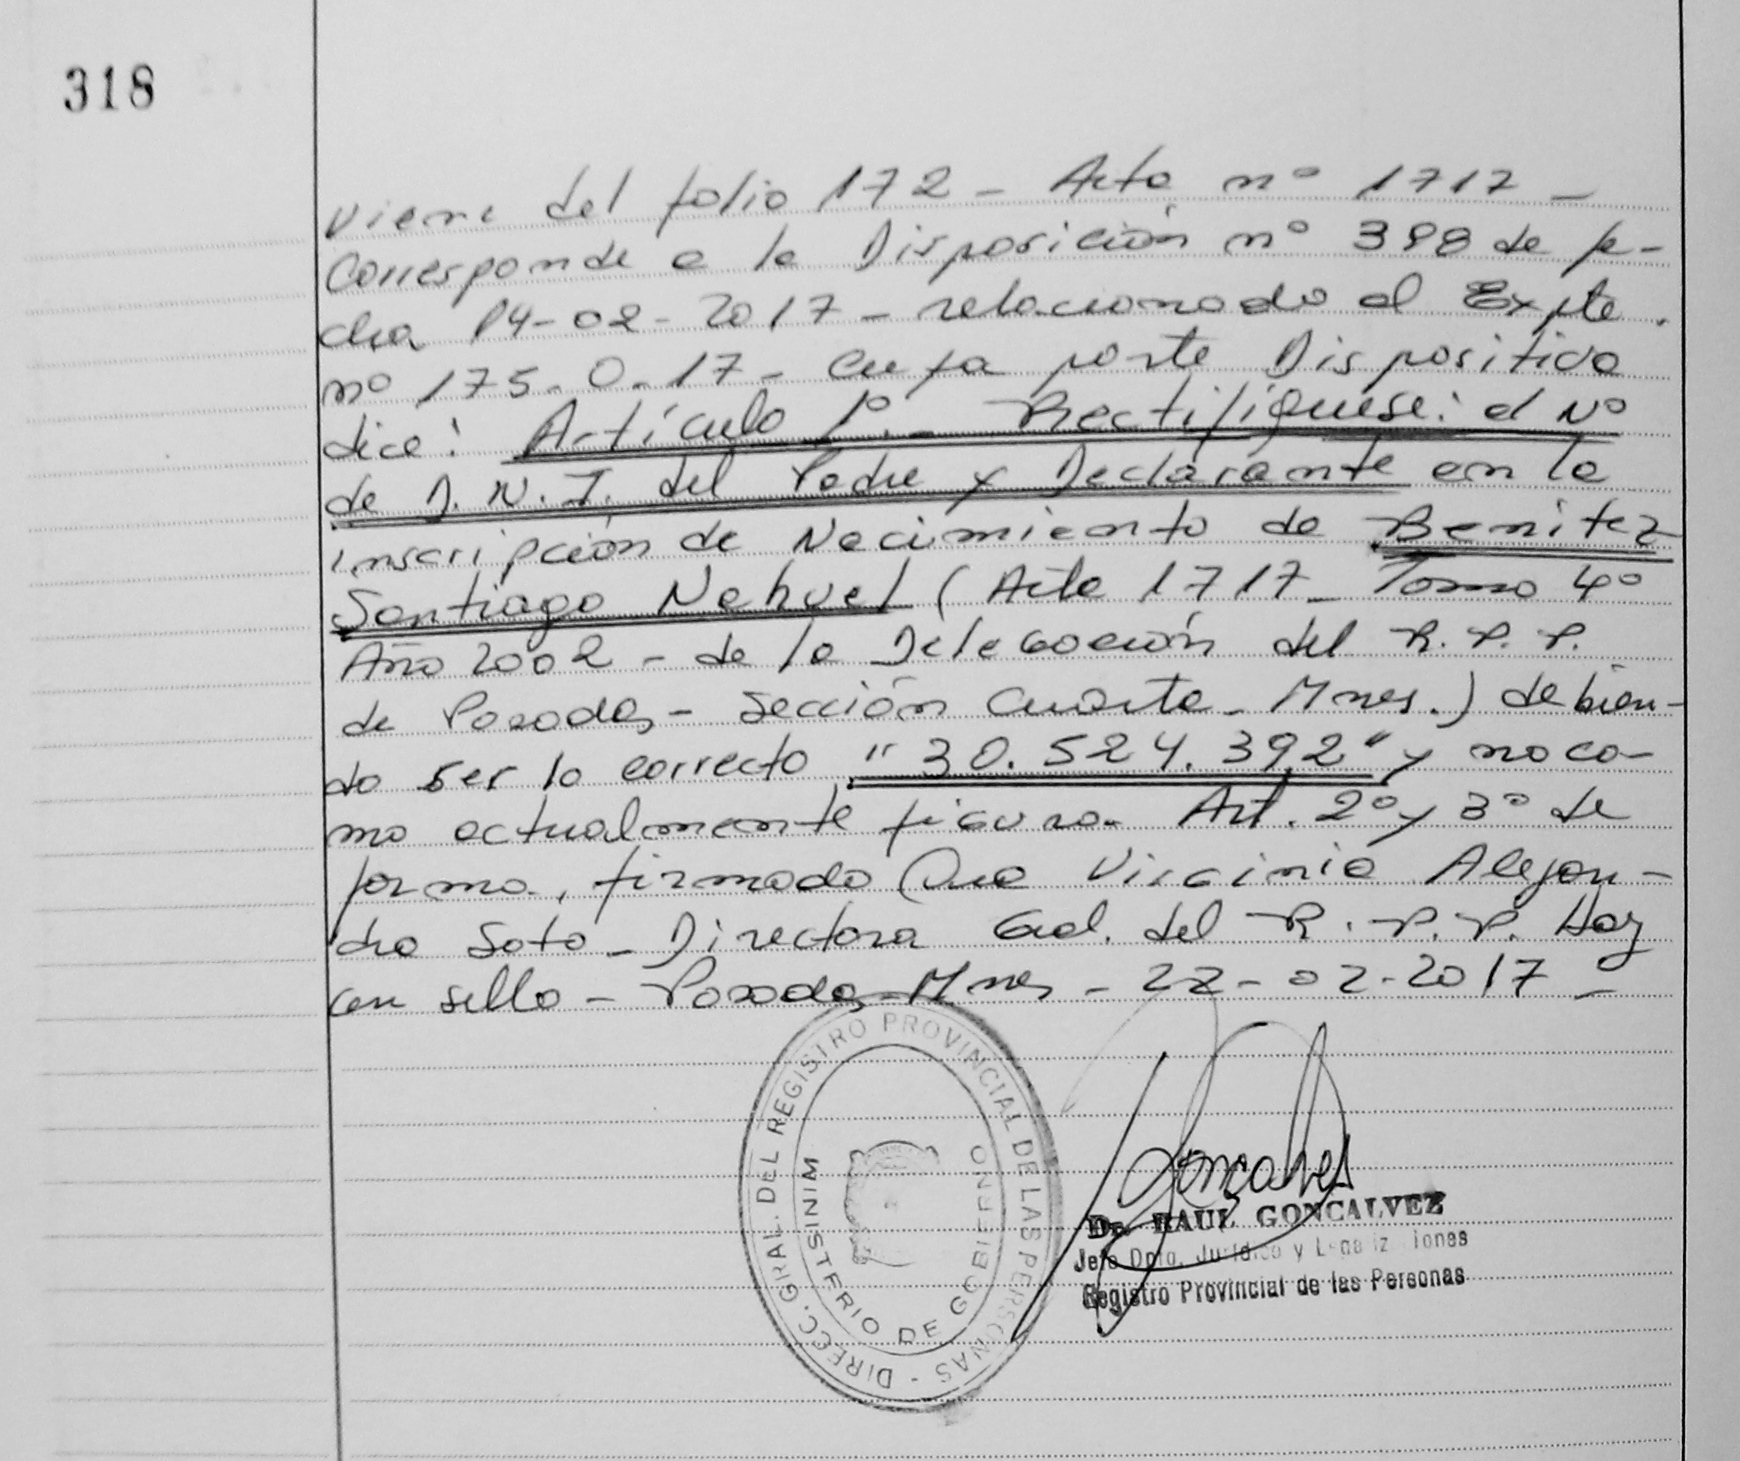 318
Viene del folio 172 - Acta nº 1717 -
Corresponde a la Disposición nº 398 de fe-
cha 14-02-2017 - relacionado al Expte.
nº 175-0-17 - cuya parte Dispositiva
dice: Artículo 1º.- Rectifíquese: el Nº
de D.N.I. del Padre y Declarante en la
inscripción de Nacimiento de Benitez
Santiago Nahuel (Acta 1717 - Tomo 4º
Año 2002 - de la Delegación del R.P.P.
de Posadas - Sección Cuarta - Mnes.) debien-
do ser lo correcto "30.524.392" y no co-
mo actualmente figura. Art. 2º y 3º de
forma, firmado Dra Virginia Alejan-
dra Soto - Directora Gral. del R.P.P. Hay
un sello - Posadas Mnes - 22-02-2017 -
DIRECC. GRAL. DEL REGISTRO PROVINCIAL DE LAS PERSONAS -
MINISTERIO DE GOBIERNO
Dr. RAUL GONCALVEZ
Jefe Dpto. Jurídico y Legalizaciones
Registro Provincial de las Personas